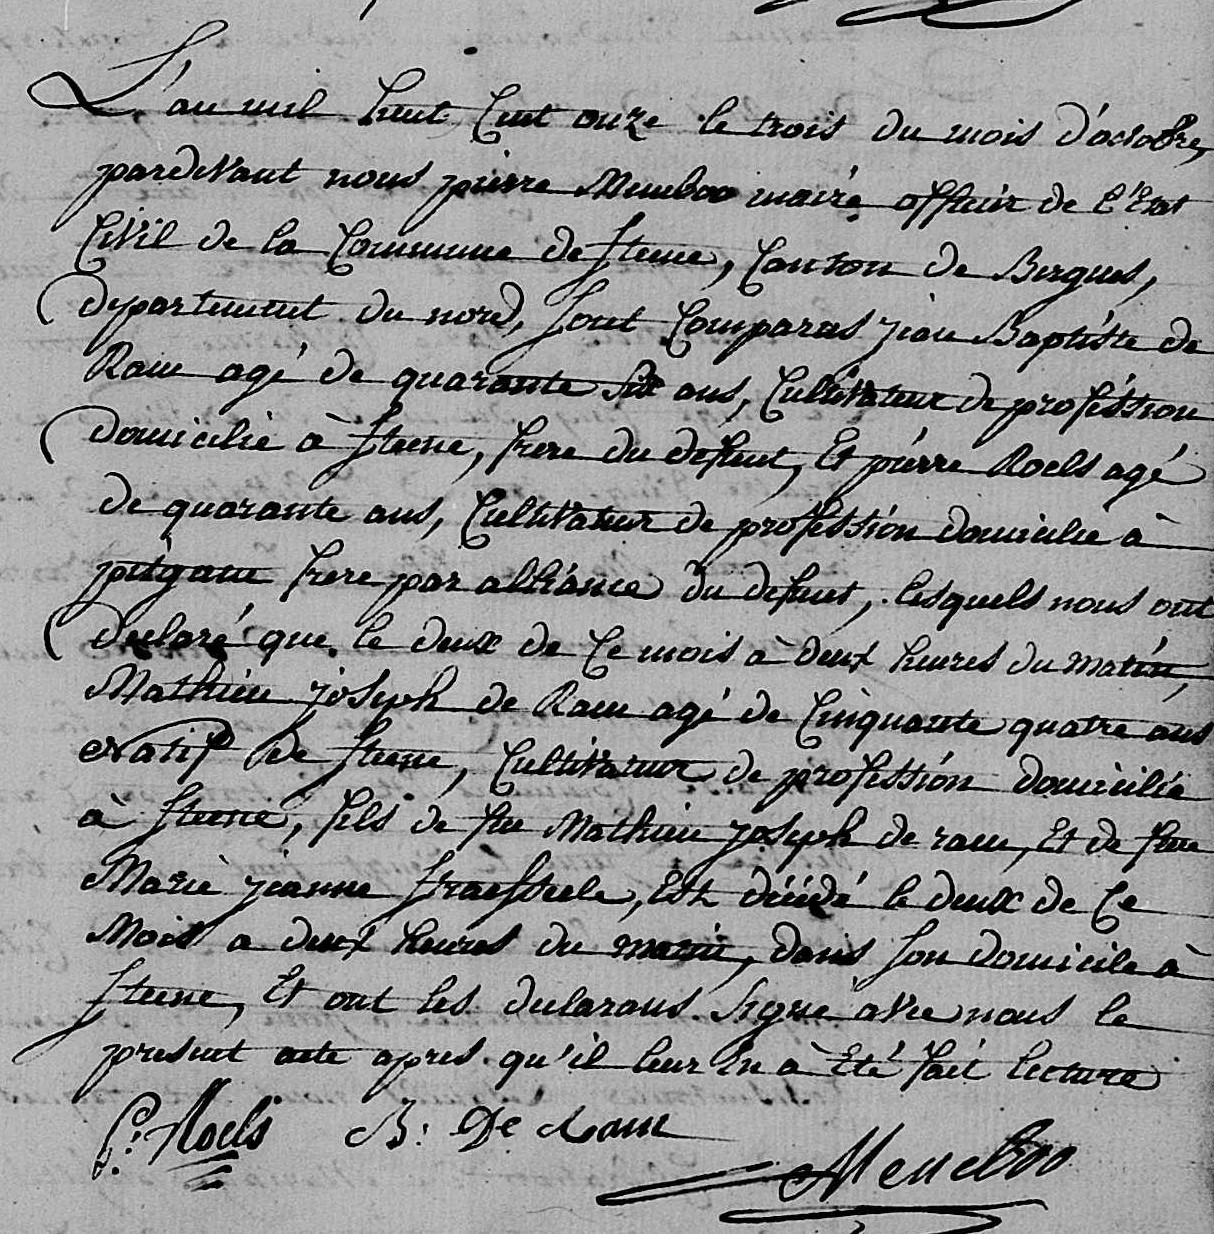 L'an mil huit cent onze le trois du mois d'octobre,
pardevant nous pierre Meneboo maire officier de l'Etat
Civil de la Commune de Steene, Canton de Bergues,
departement du nord, sont Comparus jean Baptiste de
Raeu agé de quarante six ans, Cultivateur de profession
domicilié à Steene, frere du defunt, Et pierre Roels agé
de quarante ans, Cultivateur de profession domicilié à
pitgam frere par alliance du defunt, lesquels nous ont
declaré que le deux de Ce mois à deux heures du matin,
Mathieu joseph de Raeu agé de Cinquante quatre ans
Natif de Steene, Cultivateur de profession domicilié
à Steene, fils de feu Mathieu joseph de raeu, Et de feue
Marie jeanne Straesteele, Est décédé le deux de Ce
Mois a deux heures du matin, dans son domicile à
Steene, Et ont les declarans signé avec nous le
present acte apres qu'il leur En à Eté fait lecture
P: Roels B: De Raeu
Meneboo